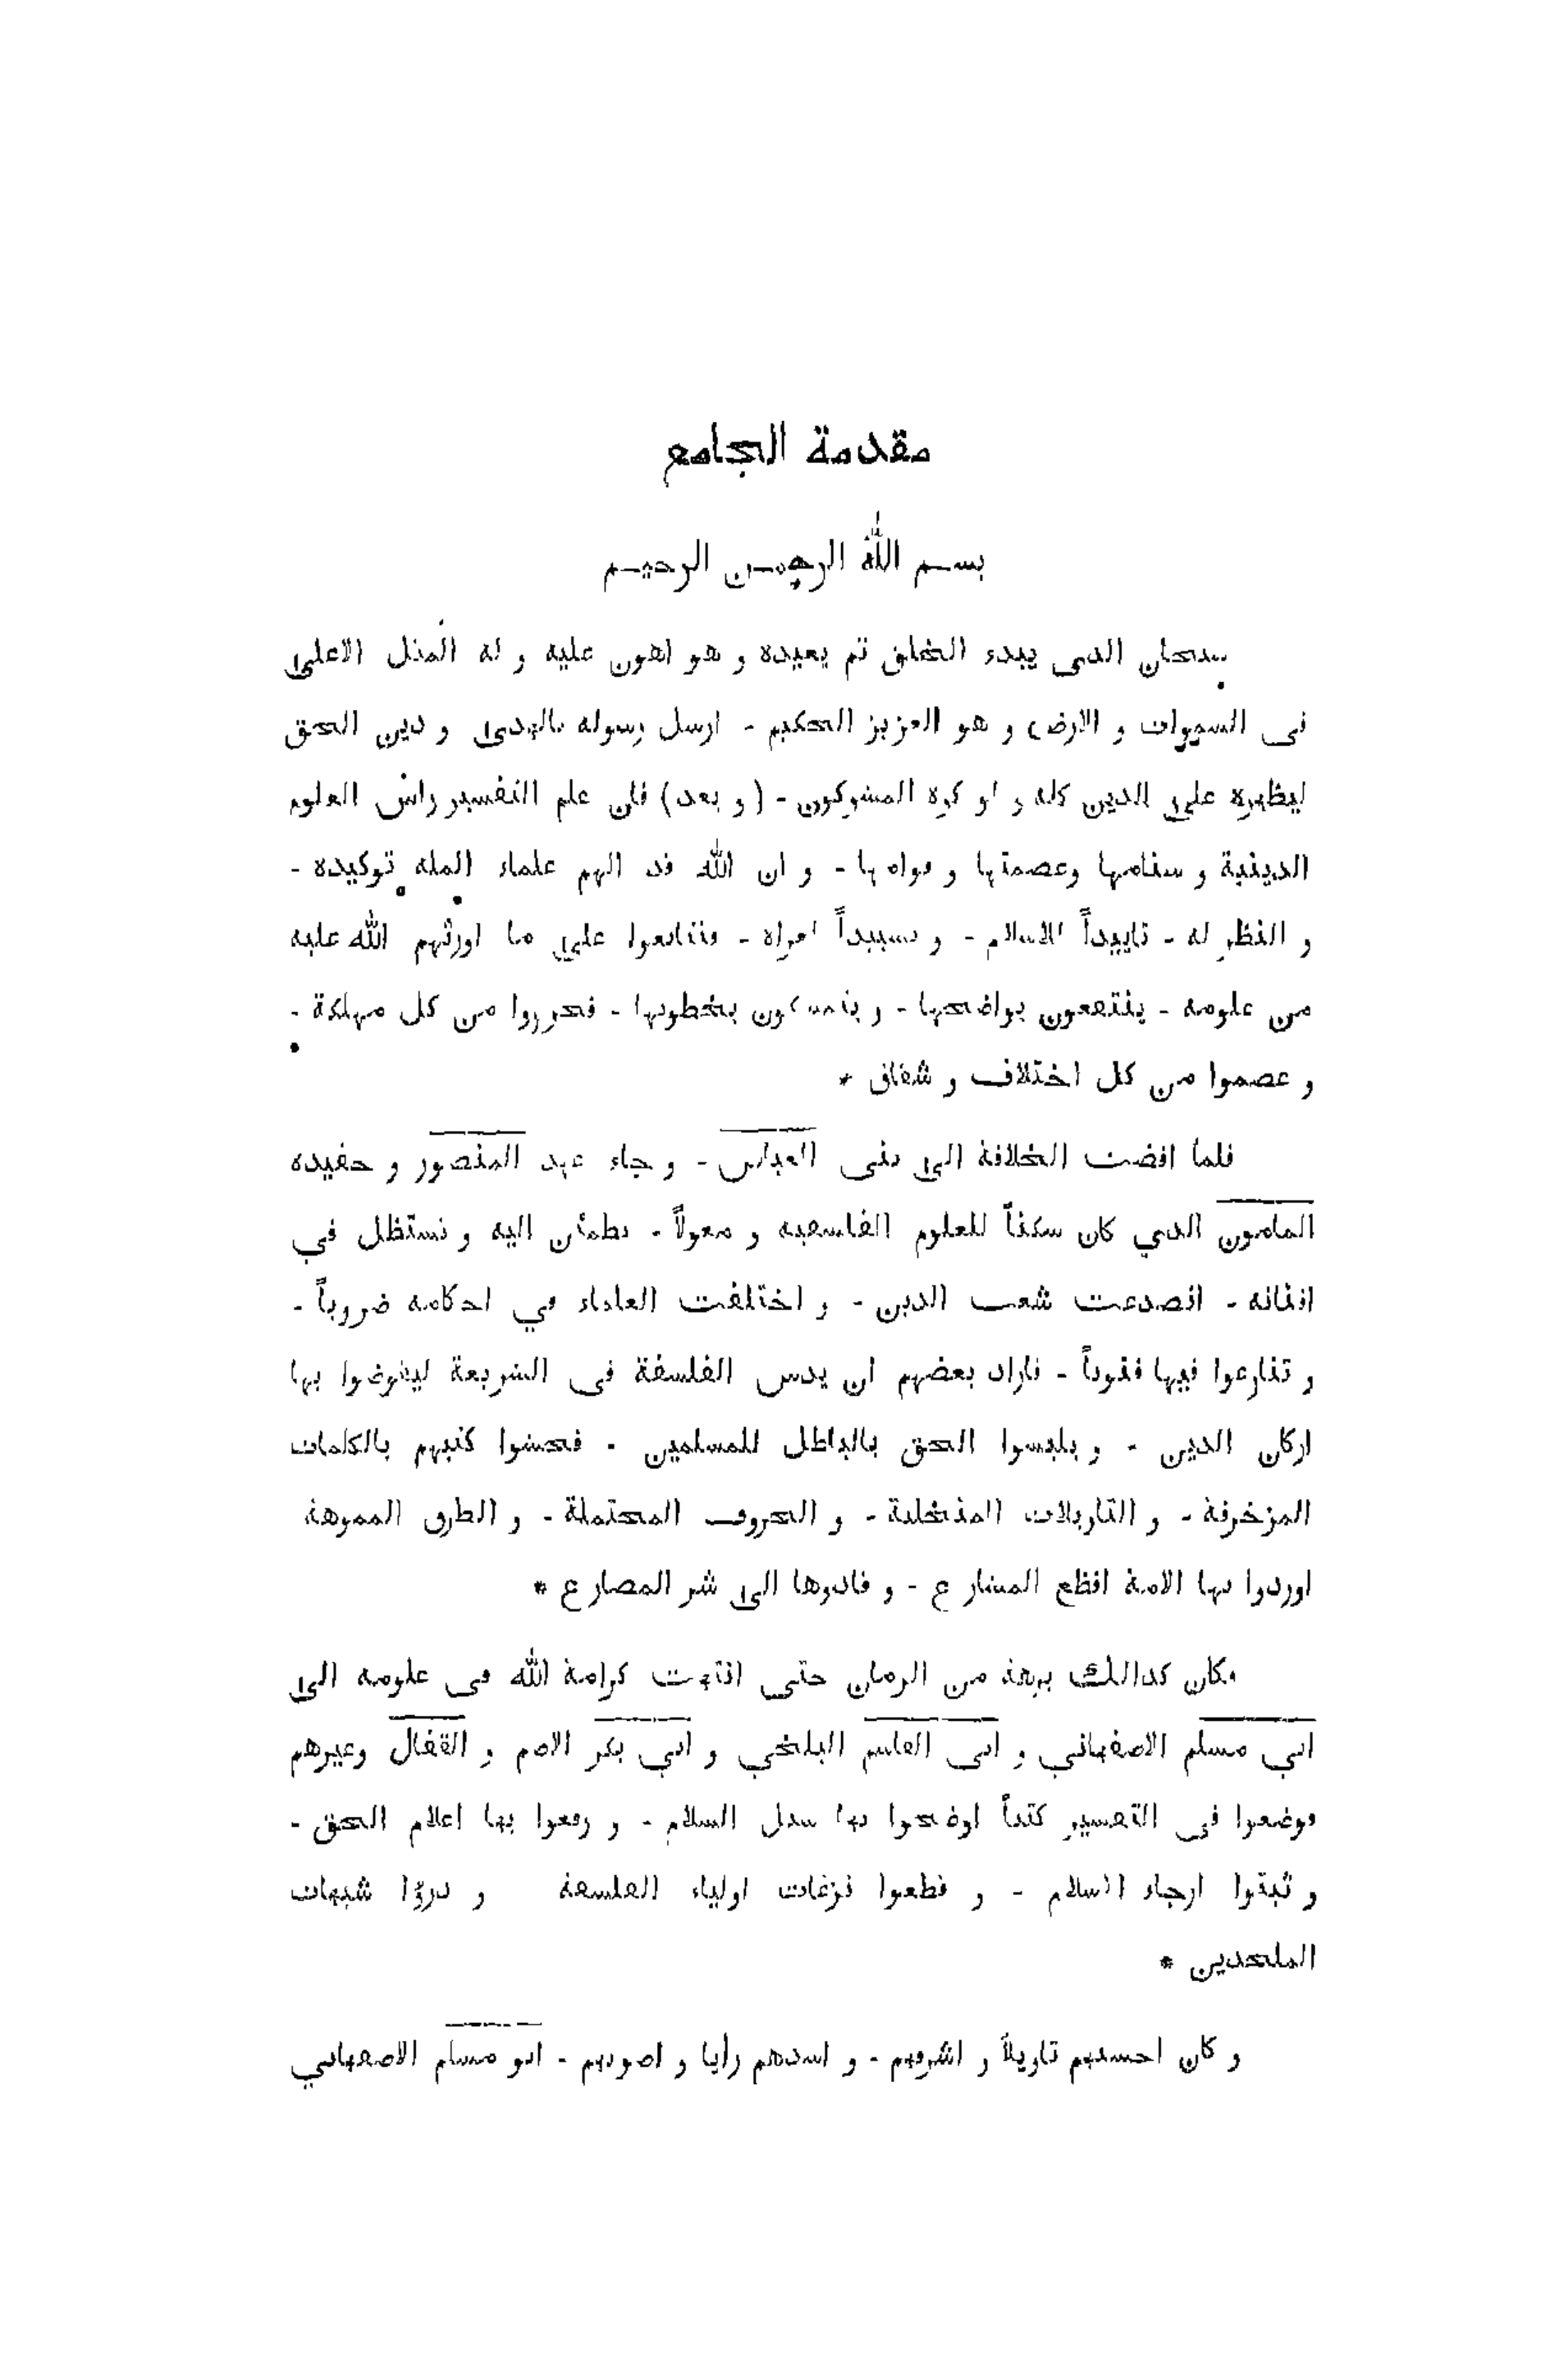 مقدمة الجامع
بسم الله الرحمن الرحيم
سبحان الذى يبدء الخلق ثم يعيده و هو اهون عليه و له المثل الاعلى
فى السموات و الارض و هو العزيز الحكيم - ارسل رسوله بالهدى و دين الحق
ليظهره على الدين كله و لو كره المشركون - ( و بعد ) فان علم التفسير راس العلوم
الدينية و سنامها وعصمتها و قوامها - و ان الله قد الهم علماء المله توكيده -
و النظر له - تاييداً للاسلام - و تسييداً - فتتابعوا على ما اورثهم الله عليه
من علومه - ينتفعون بواضحها - و يتمسكون بخطوبها - فحرروا من كل مهلكة -
و عصموا من كل اختلاف و شقاق *
فلما افضت الخلافة الى بنى العباس - و جاء عهد المنصور و حفيده
المامون الذي كان سكناً للعلوم الفلسفيه و معولاً - تطمئن اليه و تستظل في
افنانه - انصدعت شعب الدين - و اختلفت العلماء في احكامه ضروباً -
و تنازعوا فيها فنوناً - فاراد بعضهم ان يدس الفلسفة فى الشريعة ليقوضوا بها
اركان الدين - و يلبسوا الحق بالباطل للمسلمين - فحشوا كتبهم بالكلمات
المزخرفة - و التاويلات المنخلبة - و الحروف المحتملة - و الطرق المموهة
اوردوا بها الامة افظع المشارع - و قادوها الى شر المصارع *
فكان كذالك برهة من الزمان حتى انتهت كرامة الله فى علومه الى
ابي مسلم الاصفهاني و ابى القاسم البلخي و ابي بكر الاصم و القفال وغيرهم
فوضعوا فى التفسير كتباً اوضحوا بها سبل السلام - و رفعوا بها اعلام الحق -
و ثبتوا ارجاء الاسلام - و قطعوا نزغات اولياء الفلسفة و درؤا شبهات
الملحدين *
و كان احسنهم تاويلاً و اشرفهم - و اسدهم رأيا و اصوبهم - ابو مسلم الاصفهاني